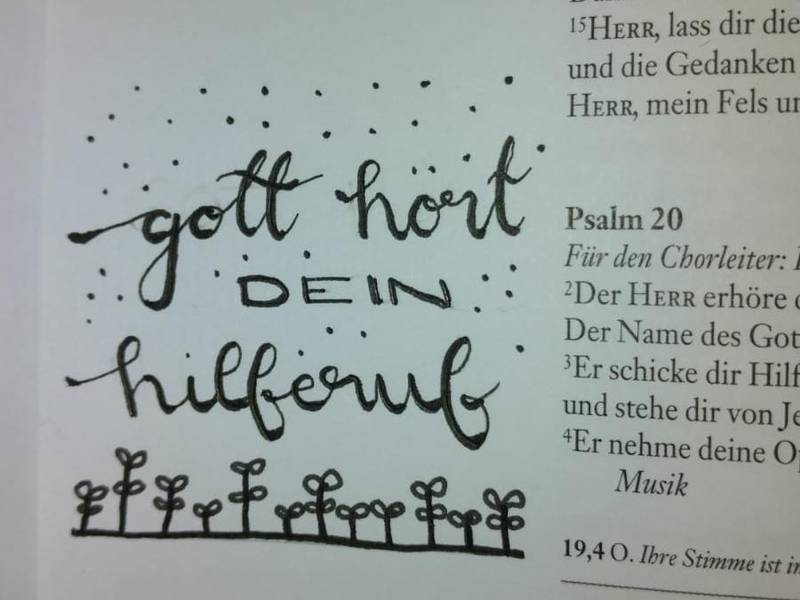 gott hört
DEIN
hilferuf
15HERR, lass dir die
und die Gedanken
HERR, mein Fels un
Psalm 20
Für den Chorleiter:
2Der HERR erhöre d
Der Name des Gott
3Er schicke dir Hilf
und stehe dir von Je
4Er nehme deine Op
Musik
19,4 O. Ihre Stimme ist in